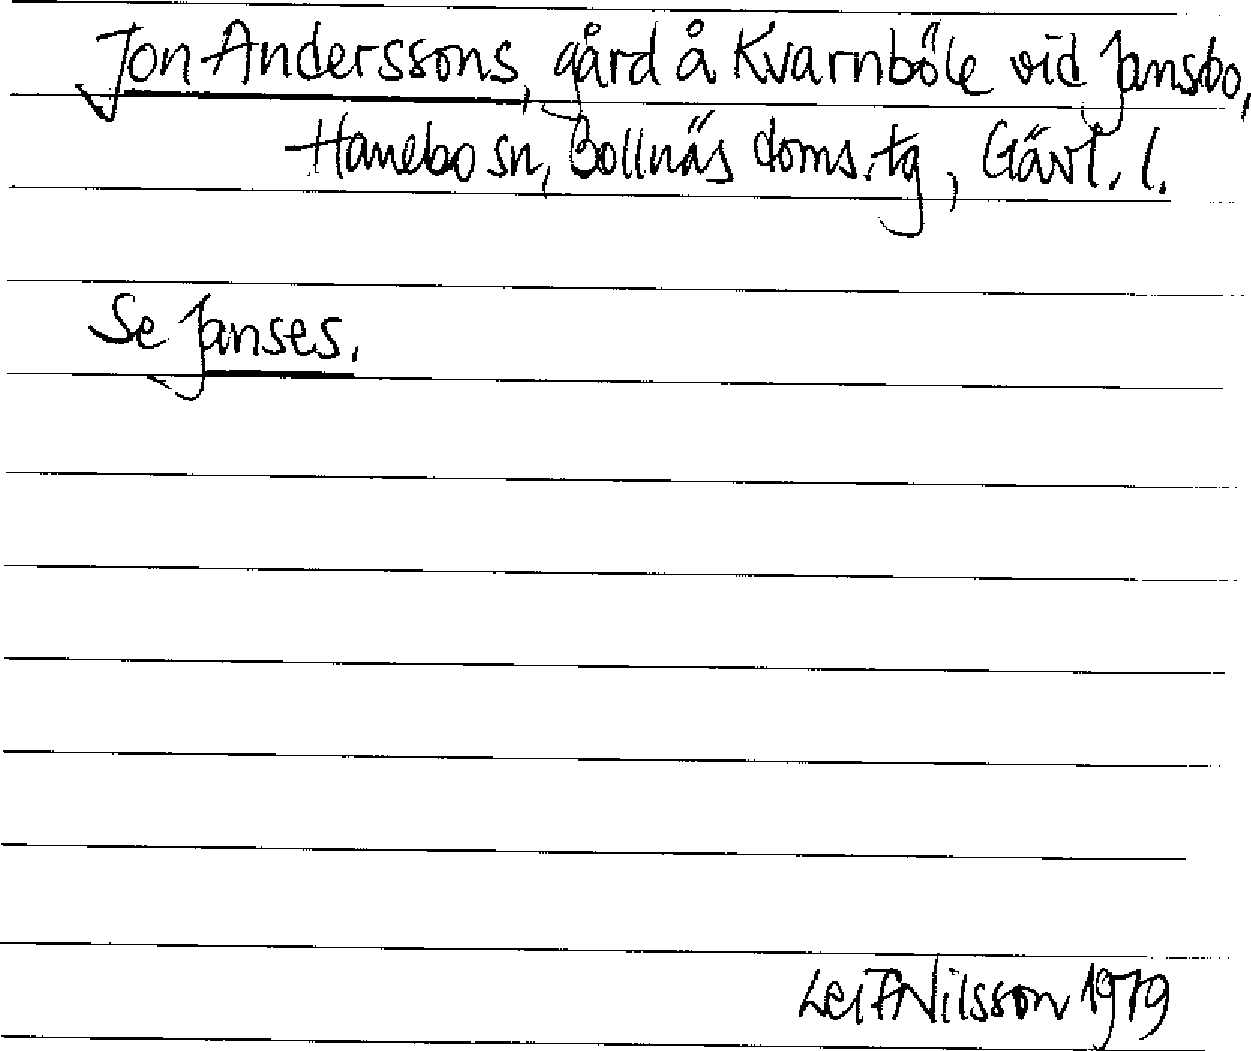 Jon Anderssons, gård å Kvarnböle vid Jansbo,
Hanebo sn, Bollnäs doms.tg, Gävl. l.
Se Janses.
Leif Nilsson 1979